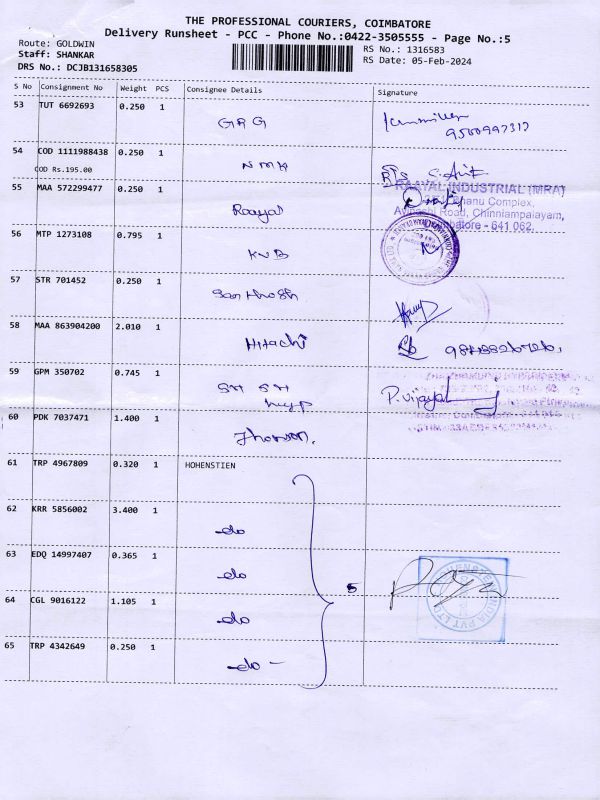 THE PROFESSIONAL COURIERS, COIMBATORE
Delivery Runsheet - PCC - Phone No.:0422-3505555 - Page No.:5
Route: GOLDWIN
Staff: SHANKAR
DRS No.: DCJB131658305
RS No.: 1316583
RS Date: 05-Feb-2024
S No Consignment No Weight PCS Consignee Details Signature
53 TUT 6692693 0.250 1 GRG
9500997317
54 COD 1111988438 0.250 1 NMH
COD Rs.195.00
55 MAA 572299477 0.250 1 Raayal
RAAYAL INDUSTRIAL (MRA)
Complex,
Avinashi Road, Chinniampalayam,
- 641 062.
56 MTP 1273108 0.795 1 KNB
57 STR 701452 0.250 1 Santhosh
58 MAA 863904200 2.010 1 Hitachi
59 GPM 350702 0.745 1 SM SM
P. Vijayal
60 PDK 7037471 1.400 1 Jhonson.
61 TRP 4967809 0.320 1 HOHENSTIEN
62 KRR 5856002 3.400 1 -do
63 EDQ 14997407 0.365 1 -do
64 CGL 9016122 1.105 1 -do
65 TRP 4342649 0.250 1 -do -
5